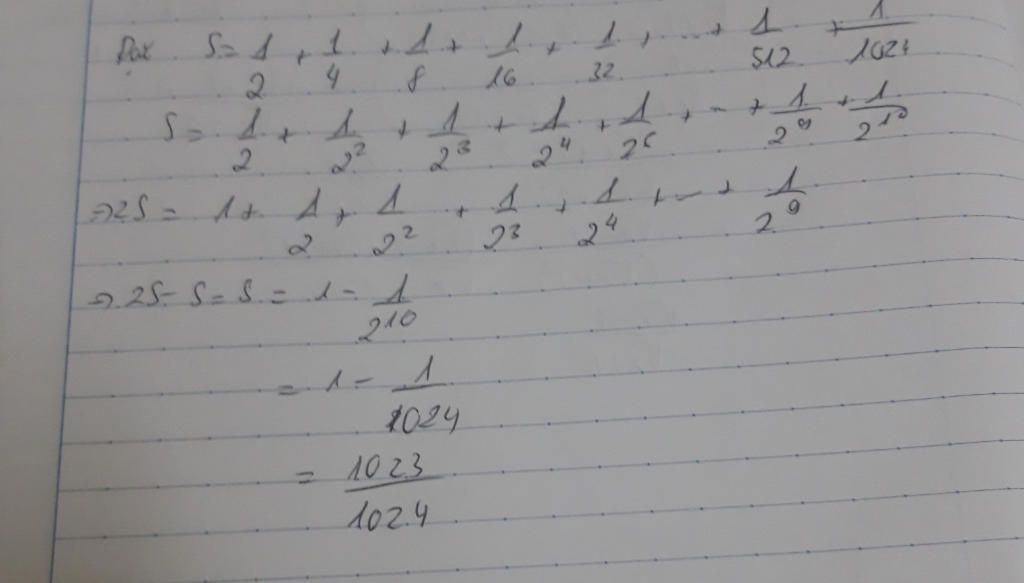 Đặt S = 1/2 + 1/4 + 1/8 + 1/16 + 1/32 + ... + 1/512 + 1/1024
S = 1/2 + 1/2² + 1/2³ + 1/2⁴ + 1/2⁵ + ... + 1/2⁹ + 1/2¹⁰
⇒ 2S = 1 + 1/2 + 1/2² + 1/2³ + 1/2⁴ + ... + 1/2⁹
⇒ 2S - S = S = 1 - 1/2¹⁰
= 1 - 1/1024
= 1023/1024